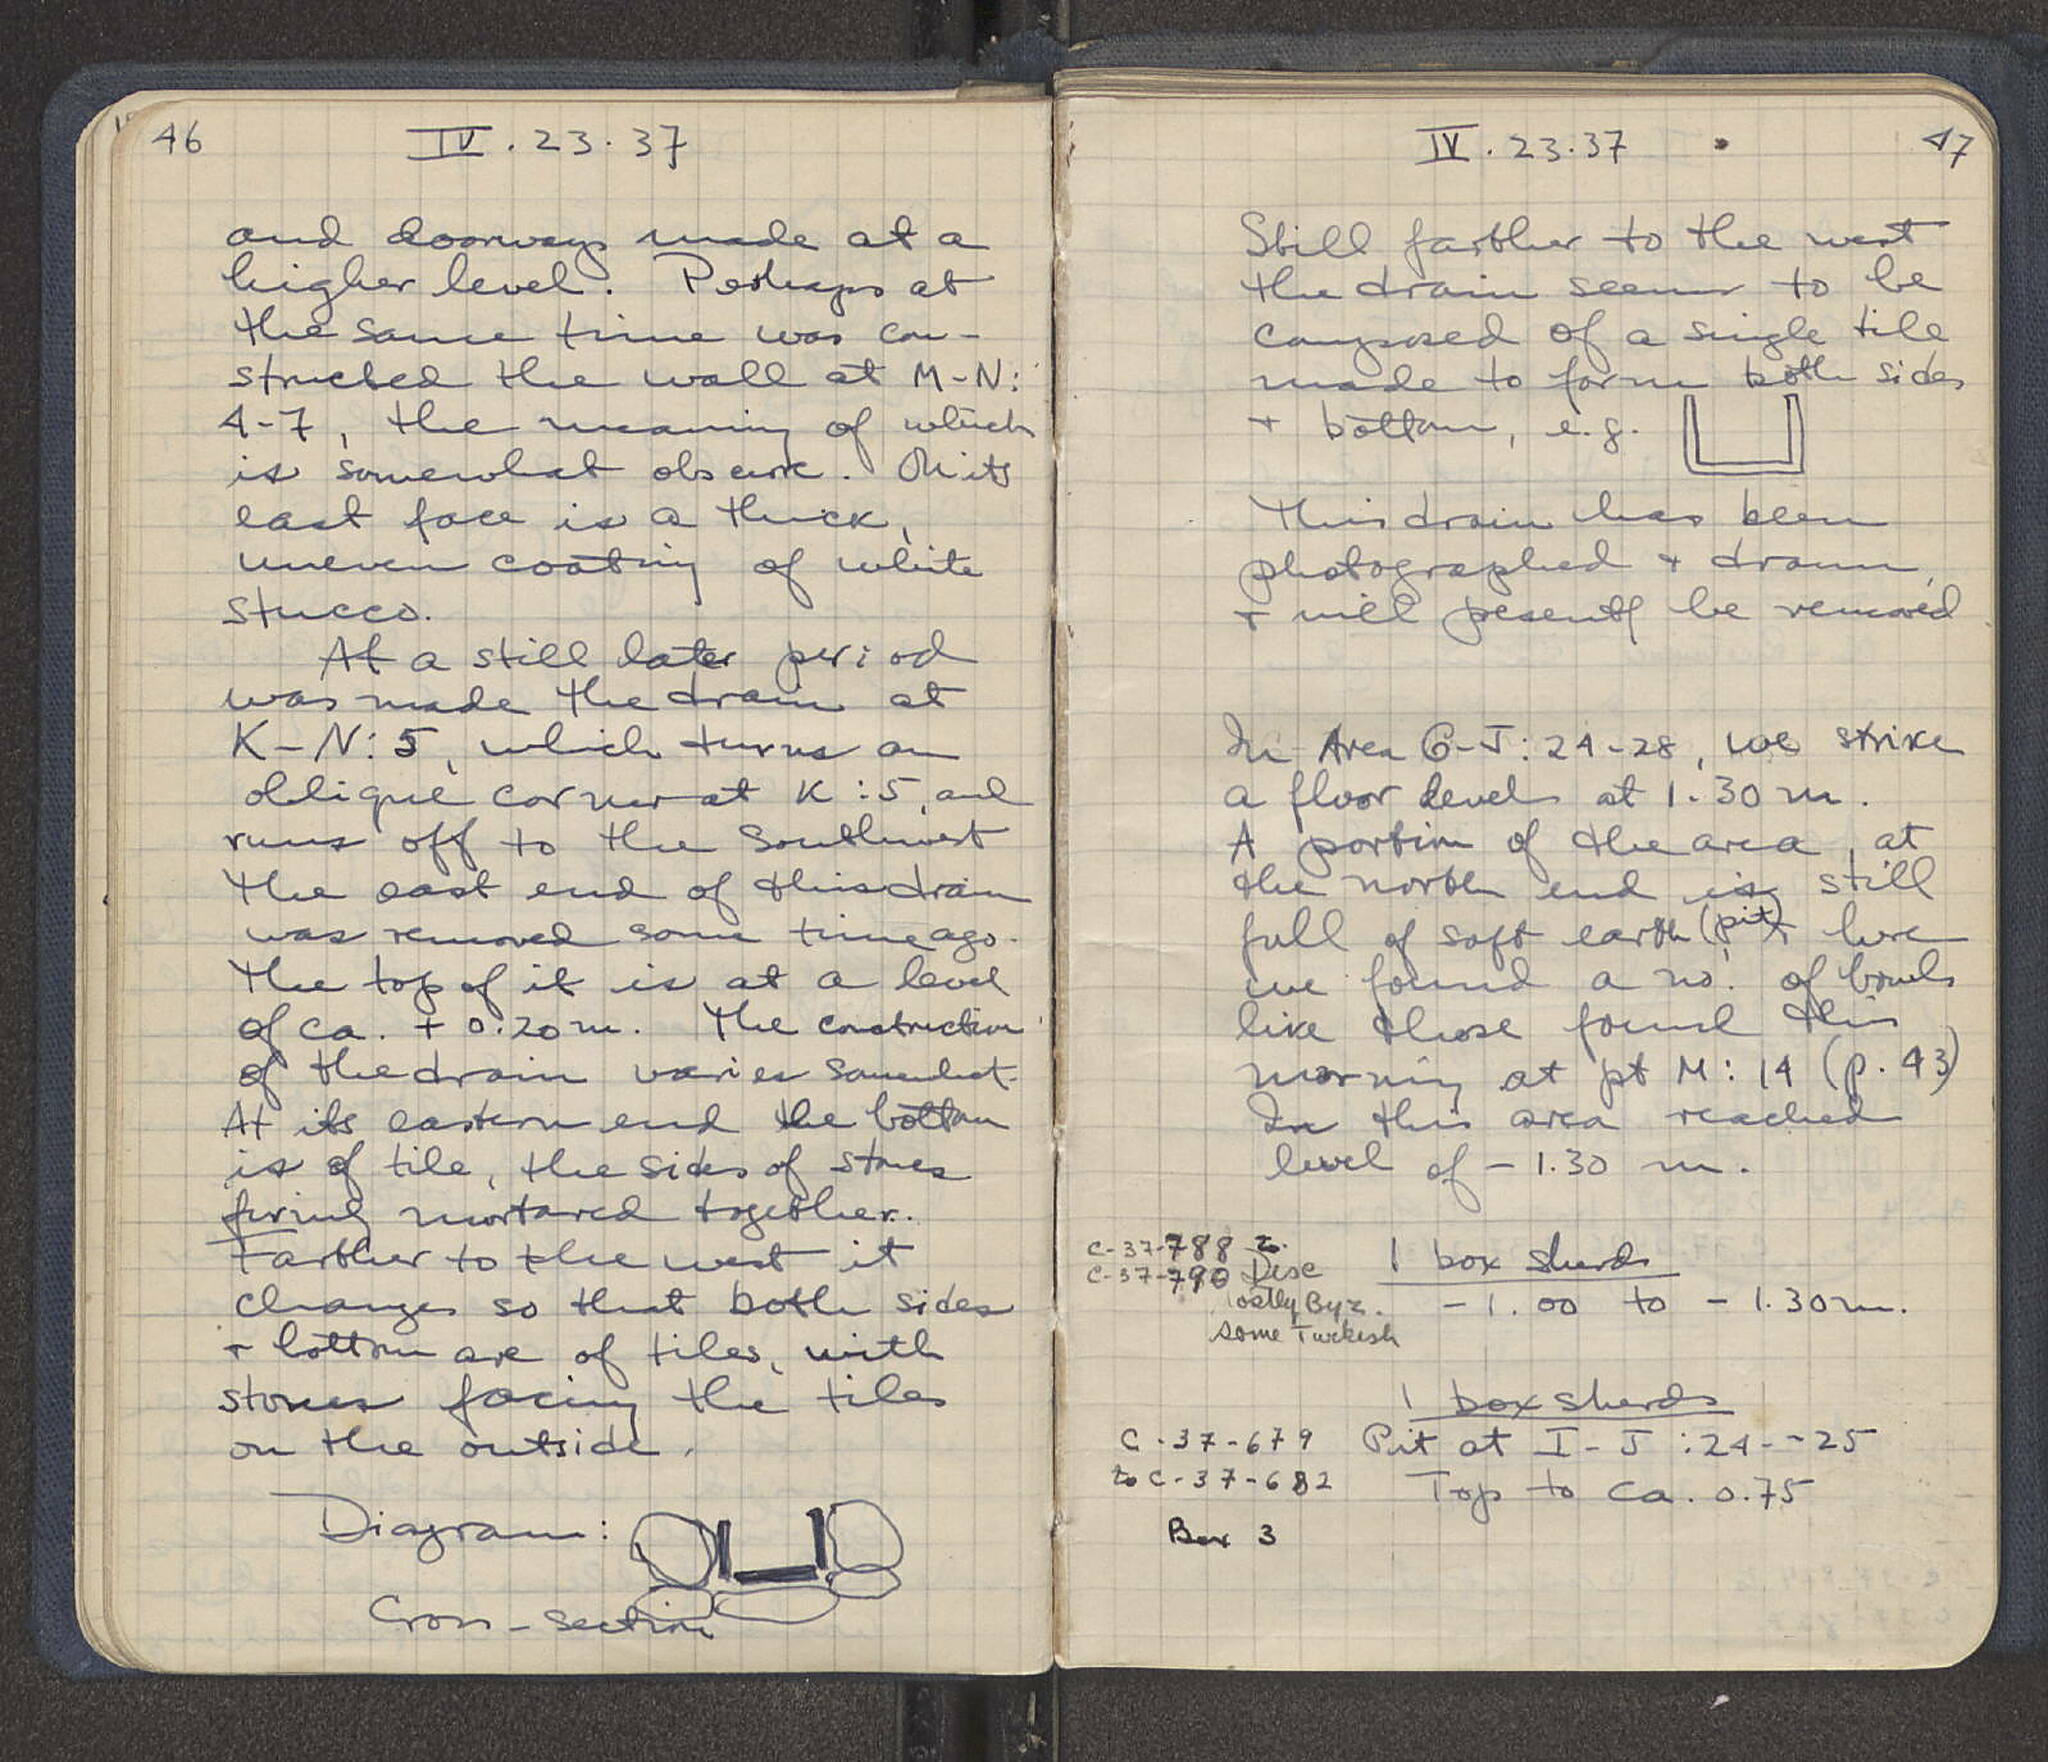 46
IV . 23 . 37
and doorways made at a
higher level. Perhaps at
the same time was con-
structed the wall at M-N:
4-7, the meaning of which
is somewhat obscure. On its
east face is a thick,
uneven coating of white
stucco.
At a still later period
was made the drain at
K-N:5, which turns an
oblique corner at K:5, and
runs off to the Southwest
The east end of this drain
was removed some time ago.
The top of it is at a level
of ca. + 0.20 m. The construction
of the drain varies somewhat.
At its eastern end the bottom
is of tile, the sides of stones
firmly mortared together.
Farther to the west it
changes so that both sides
+ bottom are of tiles, with
stones facing the tiles
on the outside.
Diagram:
Cross-section
IV . 23 . 37
47
Still farther to the west
the drain seems to be
composed of a single tile
made to form both sides
+ bottom, e.g.
This drain has been
photographed + drawn,
+ will presently be removed
In Area G-J: 24-28, we strike
a floor level at 1.30 m.
A portion of the area, at
the north end is still
full of soft earth (pit) + here
we found a no. of bowls
like those found this
morning at pt M: 14 (p. 43)
In this area reached
level of - 1.30 m.
C-37-788 to
C-37-790 Disc
ostly Byz.
some Turkish
1 box sherds
- 1.00 to - 1.30 m.
1 box sherds
C-37-679
to C-37-682
Box 3
Pit at I-J: 24--25
Top to ca. 0.75